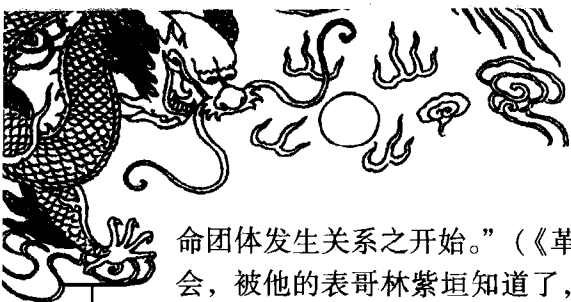 命团体发生关系之开始。”（《革
会，被他的表哥林紫垣知道了，